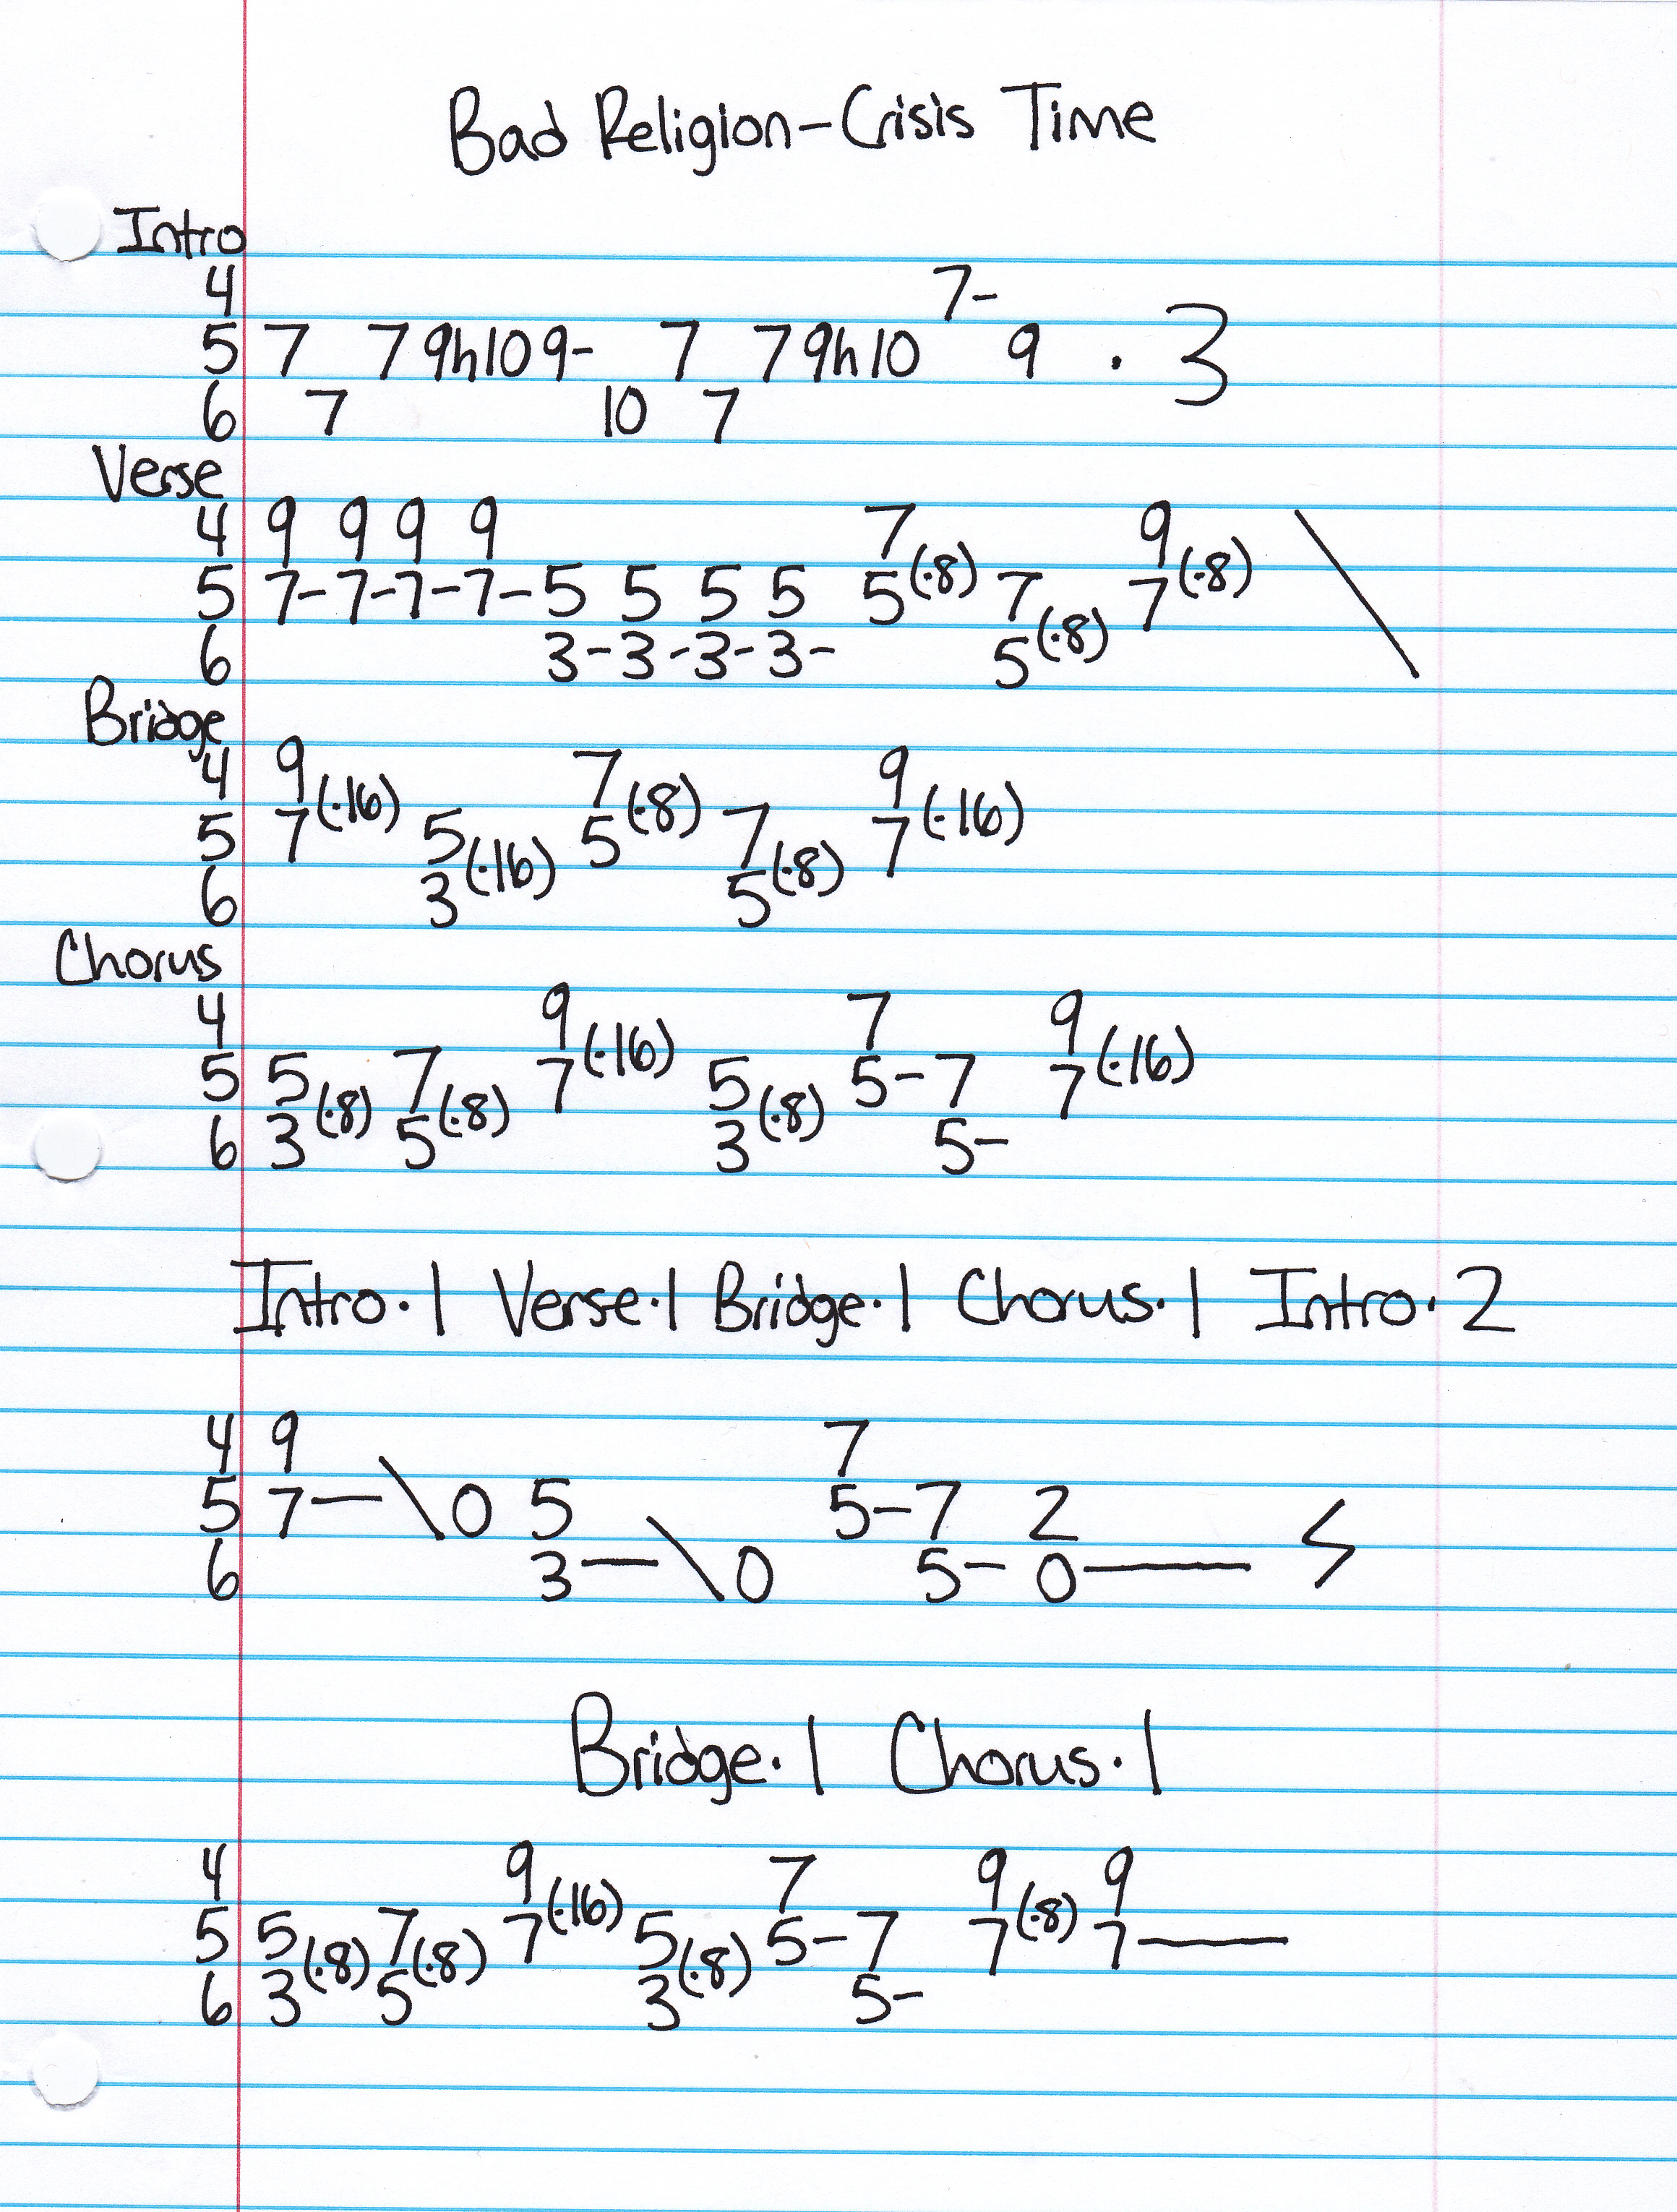 Bad Religion-Crisis Time
Intro
4 7-
5 7 7 9h10 9- 7 7 9h10 9 · 3
6 7 10 7
Verse
4 9 9 9 9 7 9 \
5 7-7-7-7-5 5 5 5 5(·8) 7 7(·8)
6 3-3-3-3- 5(·8)
Bridge
4 9 7 9
5 7(·16) 5 5(·8) 7 7(·16)
6 3(·16) 5(·8)
Chorus
4 9 7 9
5 5 7 7(·16) 5 5-7 7(·16)
6 3(·8) 5(·8) 3(·8) 5-
Intro·1 Verse·1 Bridge·1 Chorus·1 Intro·2
4 9 7
5 7—\0 5 5-7 2
6 3—\0 5- 0—
Bridge·1 Chorus·1
4 9 7 9 9
5 5 7 7(·16) 5 5-7 7(·8) 7—
6 3(·8) 5(·8) 3(·8) 5-